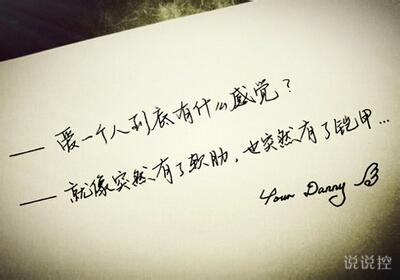 —— 爱一个人到底有什么感觉？
—— 就像突然有了软肋，也突然有了铠甲...
Your Danny
说说控